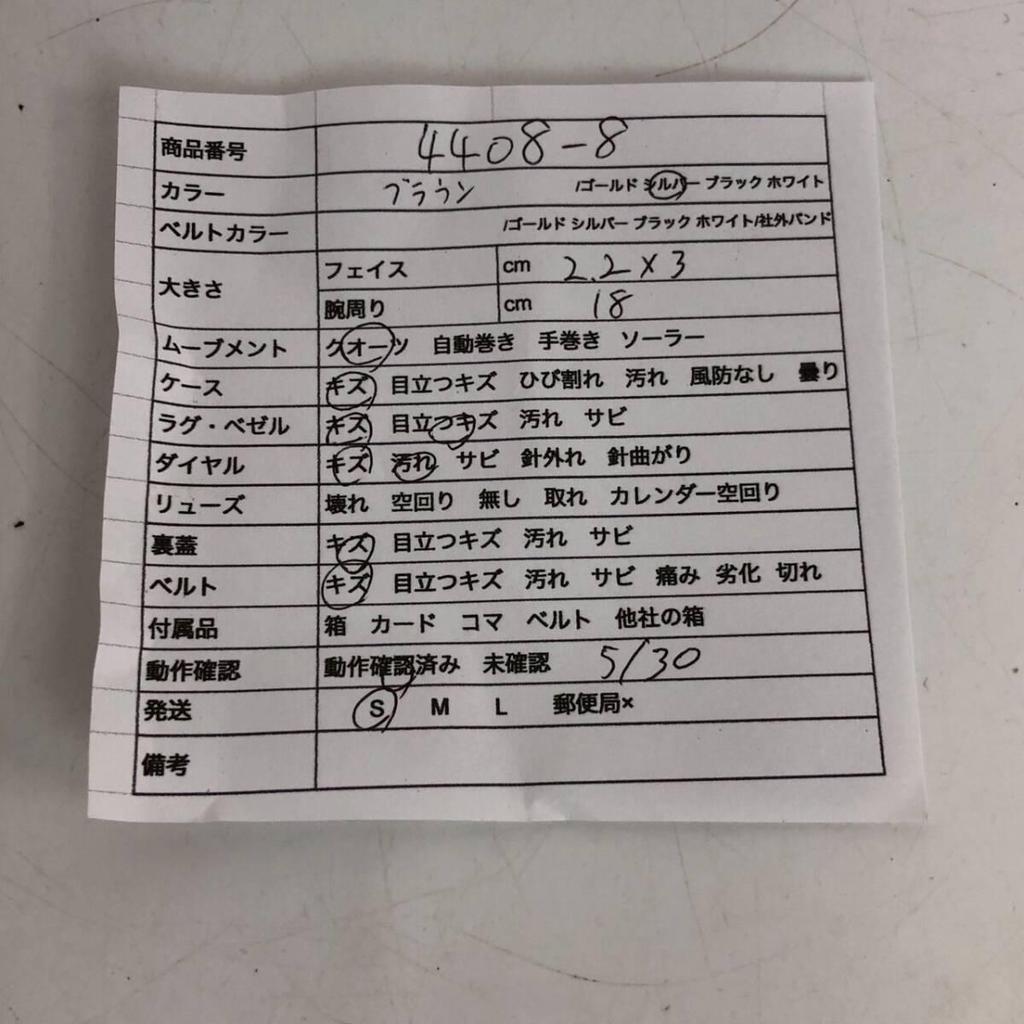 商品番号 4408-8
カラー ブラウン /ゴールド シルバー ブラック ホワイト
ベルトカラー /ゴールド シルバー ブラック ホワイト/社外バンド
大きさ フェイス cm 2.2×3
腕周り cm 18
ムーブメント クオーツ 自動巻き 手巻き ソーラー
ケース キズ 目立つキズ ひび割れ 汚れ 風防なし 曇り
ラグ・ベゼル キズ 目立つキズ 汚れ サビ
ダイヤル キズ 汚れ サビ 針外れ 針曲がり
リューズ 壊れ 空回り 無し 取れ カレンダー空回り
裏蓋 キズ 目立つキズ 汚れ サビ
ベルト キズ 目立つキズ 汚れ サビ 痛み 劣化 切れ
付属品 箱 カード コマ ベルト 他社の箱
動作確認 動作確認済み 未確認 5/30
発送 S M L 郵便局×
備考